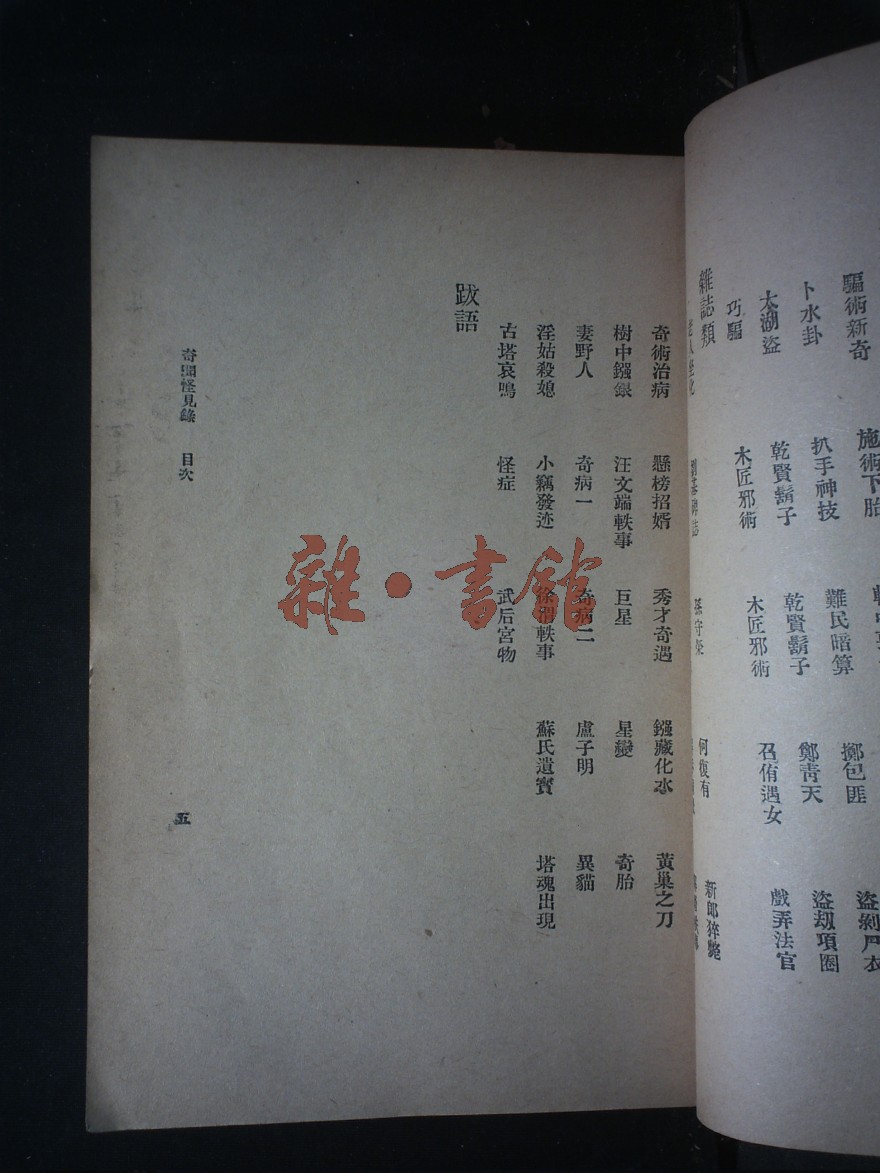 騙術新奇 施術下胎
卜水卦 扒手神技 難民暗算 擲包匪 盜剝尸衣
太湖盜 乾賢鬍子 乾賢鬍子 鄭青天 盜刼項圈
巧騙 木匠邪術 木匠邪術 召侑遇女 戲弄法官
雜誌類
何復有 新郎猝斃
奇術治病 懸榜招婿 秀才奇遇 鏹藏化水 黃巢之刀
樹中鏹銀 汪文端軼事 巨星 星變 奇胎
妻野人 奇病一 奇病二 盧子明 異貓
淫姑殺媳 小竊發迹 徐渭軼事 蘇氏遺寶 塔魂出現
古塔哀鳴 怪症 武后宮物
跋語
奇聞怪見錄 目次 五
雜·書館